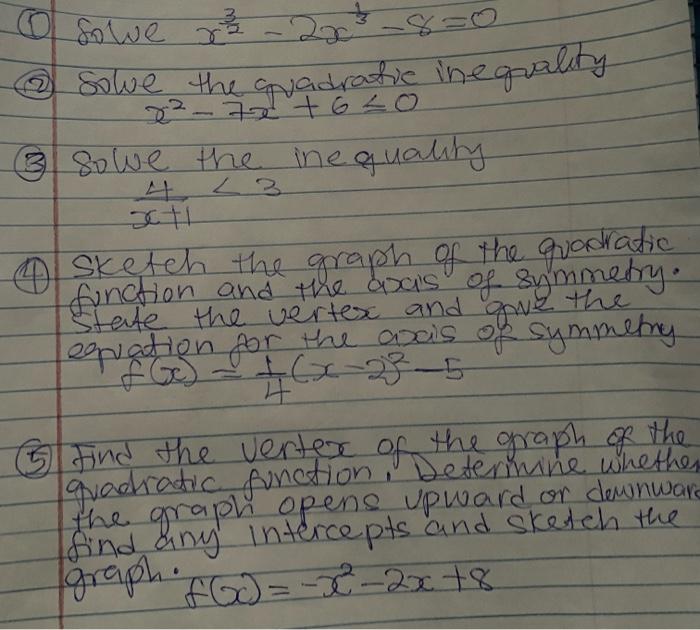 ① Solve x^{3/2} - 2x^{1/3} - 8 = 0
② Solve the quadratic inequality
x² - 7x + 6 ≤ 0
③ Solve the inequality
4/(x+1) < 3
④ Sketch the graph of the quadratic
function and the axis of symmetry.
State the vertex and give the
equation for the axis of symmetry
f(x) = 1/4 (x-2)² - 5
⑤ Find the vertex of the graph of the
quadratic function. Determine whether
the graph opens upward or downward
find any intercepts and sketch the
graph.
f(x) = -x² - 2x + 8